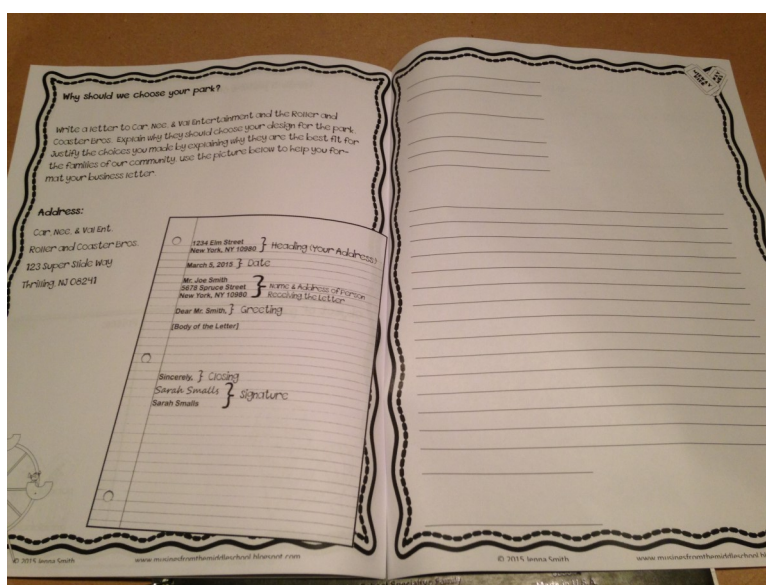 Why should we choose your park?
Write a letter to Car, Nee, & Val Entertainment and the Roller and
Coaster Bros. Explain why they should choose your design for the park.
Justify the choices you made by explaining why they are the best fit for
the families of our community. Use the picture below to help you for-
mat your business letter.
Address:
Car, Nee, & Val Ent.
Roller and Coaster Bros.
123 Super Slide Way
Thrilling, NJ 08241
1234 Elm Street
New York, NY 10980 } Heading (Your Address)
March 5, 2015 } Date
Mr. Joe Smith
5678 Spruce Street
New York, NY 10980 } Name & Address of Person
Receiving the Letter
Dear Mr. Smith, } Greeting
[Body of the Letter]
Sincerely, } Closing
Sarah Smalls
Sarah Smalls } Signature
© 2015 Jenna Smith
www.musingsfromthemiddleschool.blogspot.com
© 2015 Jenna Smith
www.musingsfromthemiddleschool.bl
Made in U